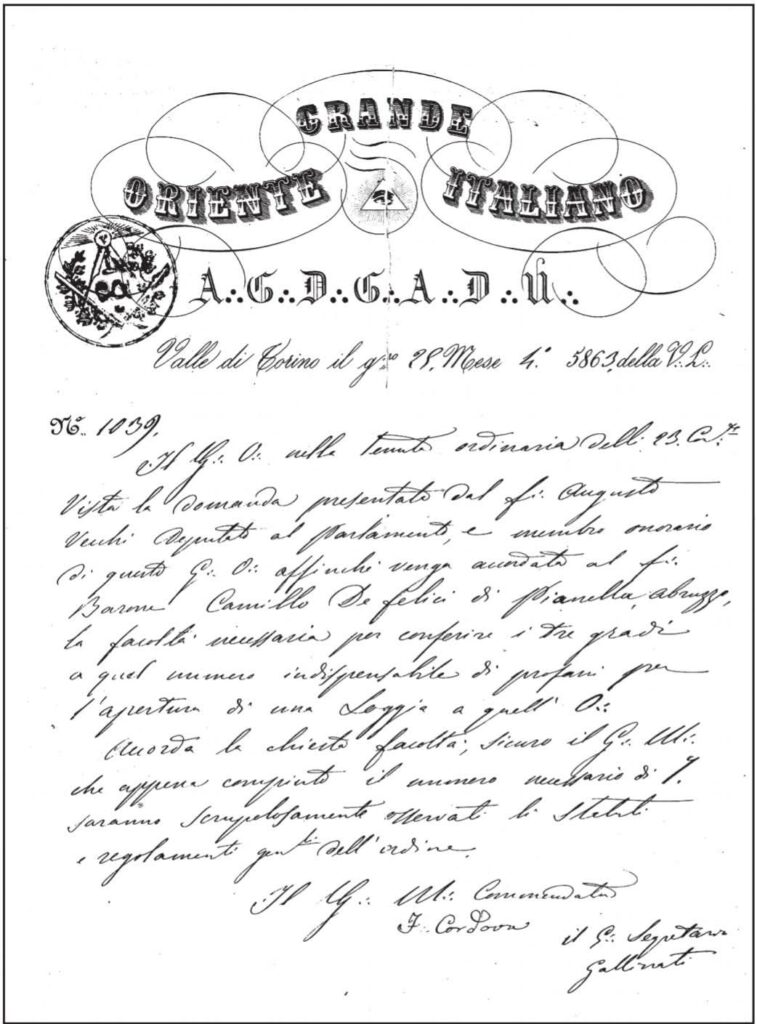 GRANDE
ORIENTE ITALIANO
A∴G∴D∴G∴A∴D∴U∴
Valle di Torino il g.no 25, Mese 4.° 5863, della V∴L∴
N.° 1039.
Il G∴ O∴ nella tenuta ordinaria delli 23. Cor.te
Vista la domanda presentata dal f∴ Augusto
Vecchi Deputato al Parlamento, e membro onorario
di questo G∴ O∴ affinchè venga accordata al f∴
Barone Camillo De Felici di Pianella, Abruzzo,
la facoltà necessaria per conferire i tre gradi
a quel numero indispensabile di profani per
l'apertura di una Loggia a quell' O∴
Accorda la chiesta facoltà, sicuro il G∴ M∴
che appena compiuto il numero necessario di 7.
saranno scrupolosamente osservati li Statuti
e regolamenti gen.li dell'ordine.
Il G∴ M∴ Commendatore
F∴ Cordova
il G∴ Segretario
Gallinati